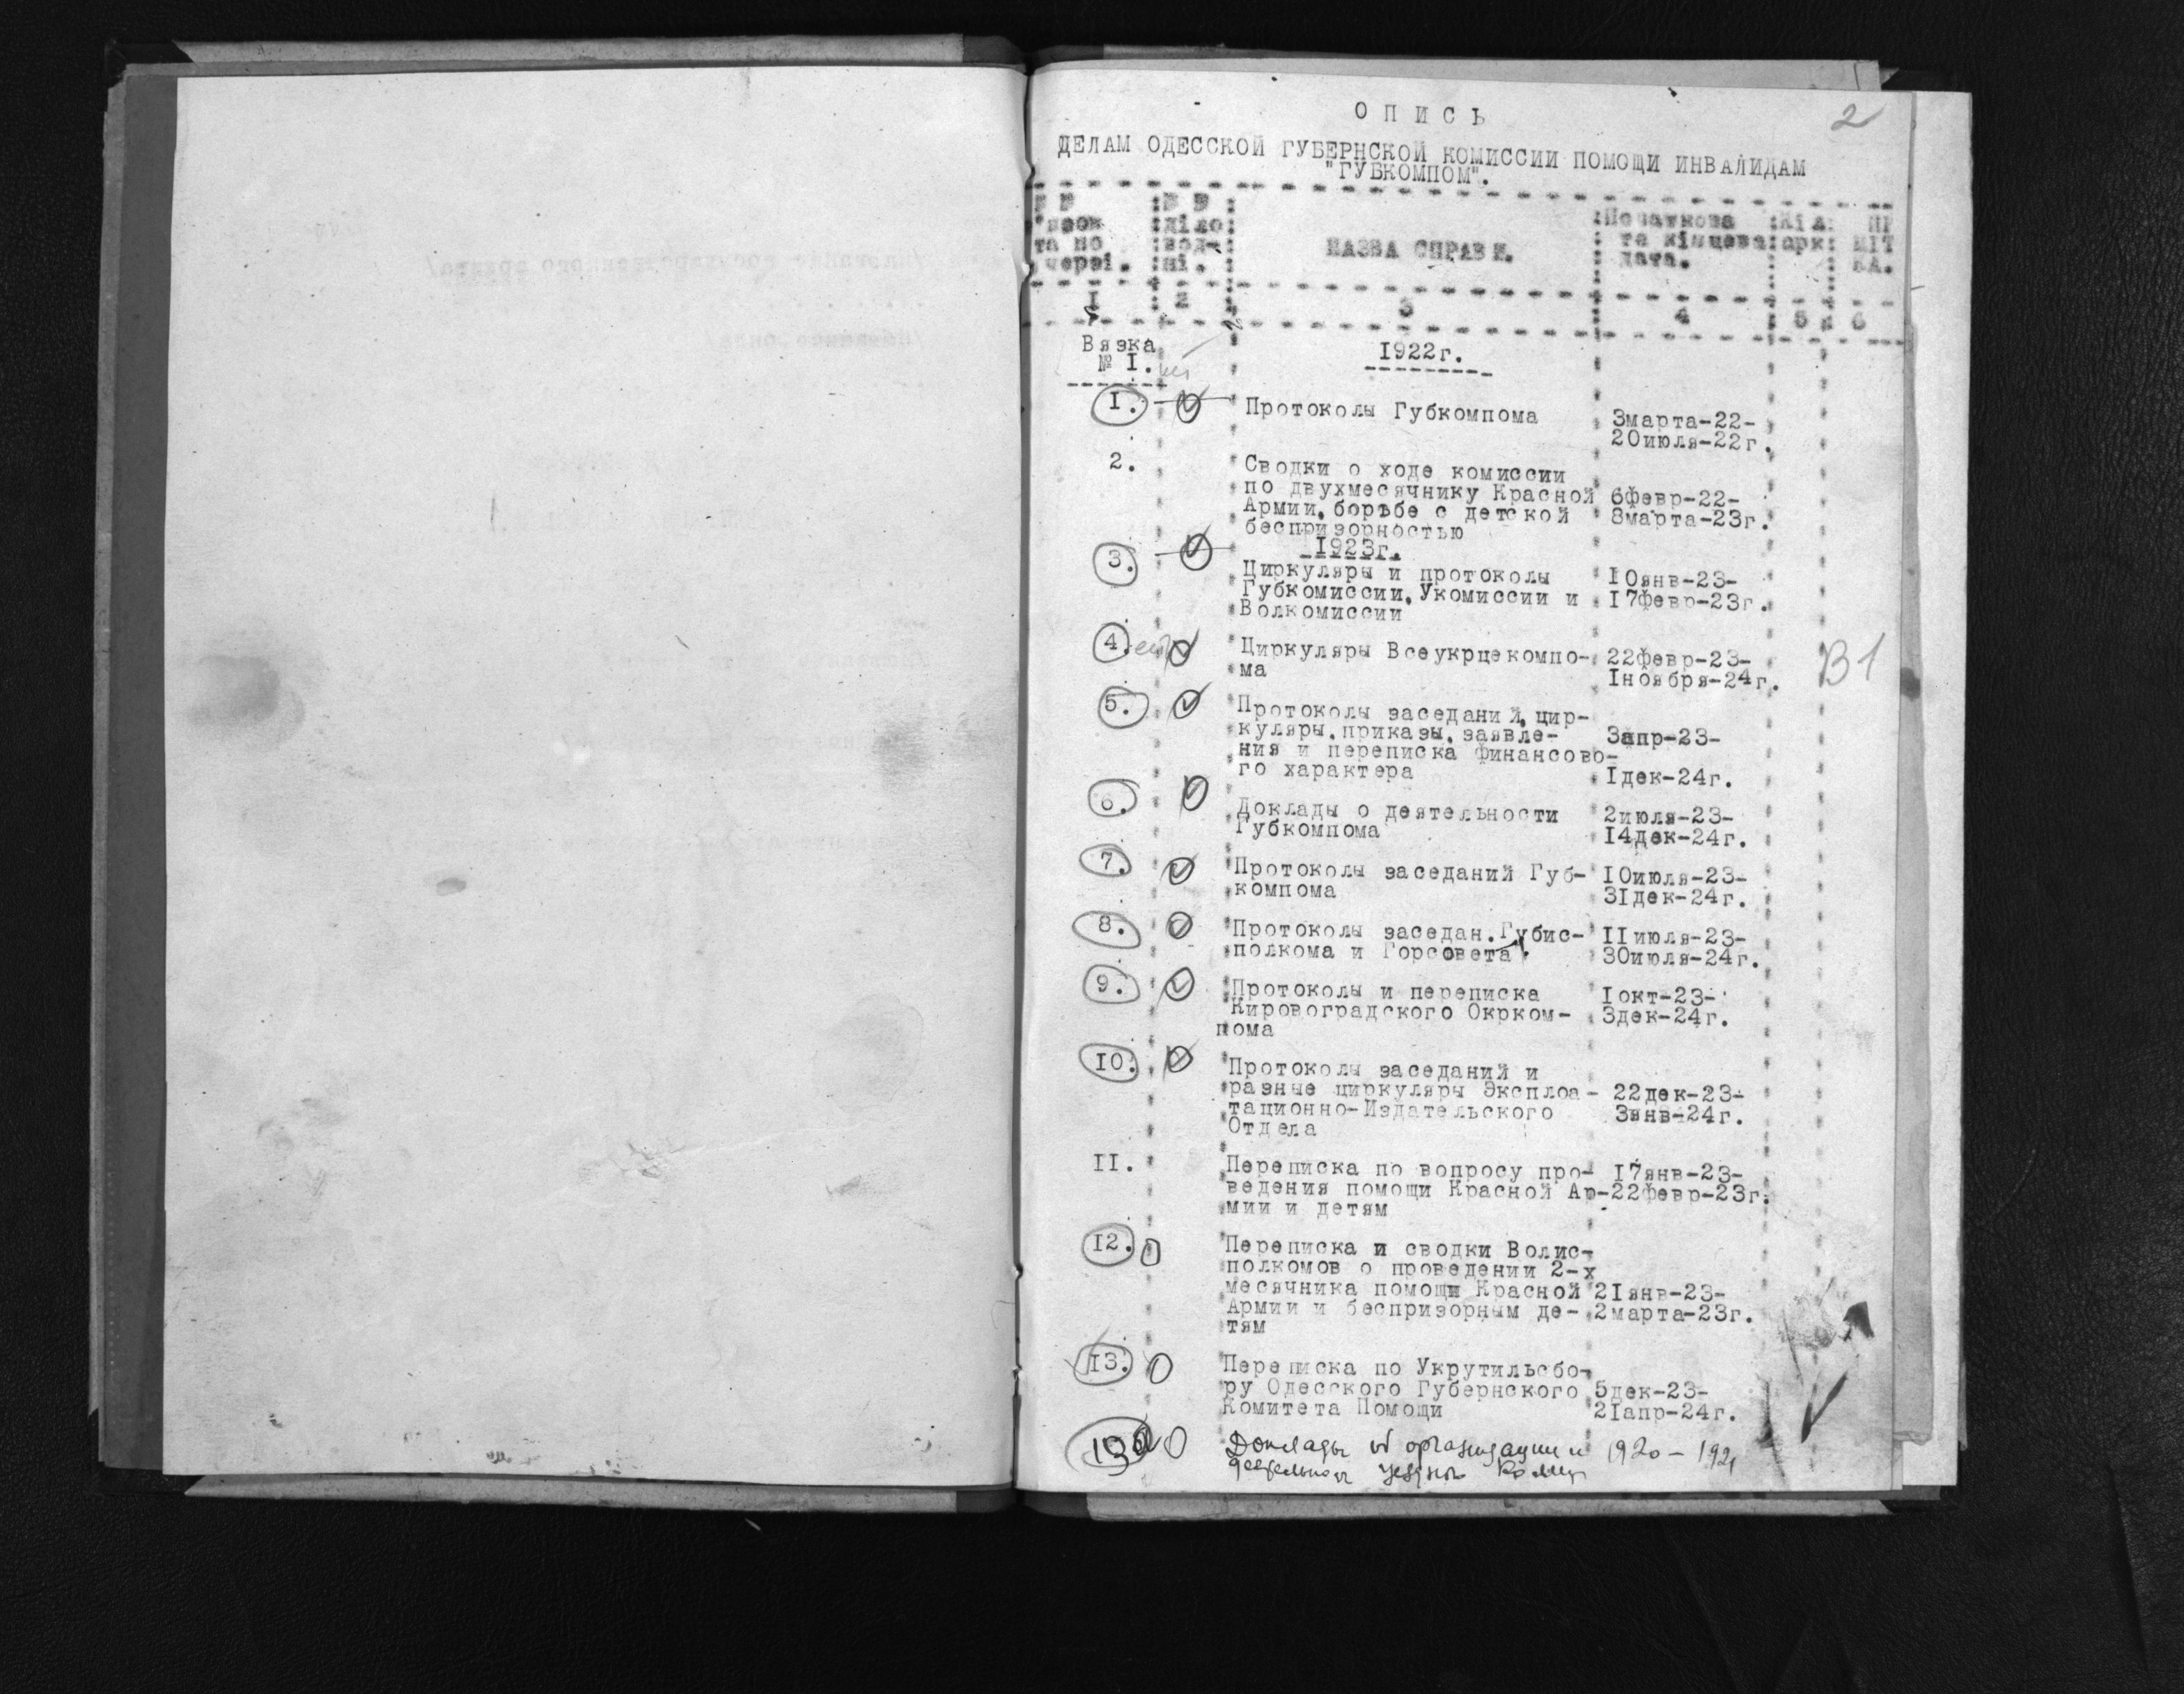 2
ОПИСЬ
ДЕЛАМ ОДЕССКОЙ ГУБЕРНСКОЙ КОМИССИИ ПОМОЩИ ИНВАЛИДАМ
"ГУБКОМПОМ".
НАЗВА СПРАВИ.
Початкова та кінцева дата.
1 2 3 4 5 6
Вязка
№ I.
1922г.
I. Протоколы Губкомпома 3марта-22-
20июля-22г.
2. Сводки о ходе комиссии
по двухмесячнику Красной 6февр-22-
Армии,борьбе с детской 8марта-23г.
беспризорностью
1923г.
3. Циркуляры и протоколы I0янв-23-
Губкомиссии,Укомиссии и I7февр-23г.
Волкомиссии
4. Циркуляры Всеукрцекомпо- 22февр-23-
ма Iноября-24г.
В1
5. Протоколы заседаний,цир-
куляры,приказы,заявле- 3апр-23-
ния и переписка финансово-
го характера Iдек-24г.
6. Доклады о деятельности 2июля-23-
Губкомпома I4дек-24г.
7. Протоколы заседаний Губ- I0июля-23-
компома 3Iдек-24г.
8. Протоколы заседан.Губис- IIиюля-23-
полкома и Горсовета. 30июля-24г.
9. Протоколы и переписка Iокт-23-
Кировоградского Окрком- 3дек-24г.
пома
I0. Протоколы заседаний и
разные циркуляры Эксплоа- 22дек-23-
тационно-Издательского 3янв-24г.
Отдела
II. Переписка по вопросу про- I7янв-23-
ведения помощи Красной Ар-22февр-23г.
мии и детям
I2. Переписка и сводки Волис-
полкомов о проведении 2-х
месячника помощи Красной 2Iянв-23-
Армии и беспризорным де- 2марта-23г.
тям
I3. Переписка по Укрутильсбо-
ру Одесского Губернского 5дек-23-
Комитета Помощи 2Iапр-24г.
13а Доклады об организации и 1920-192